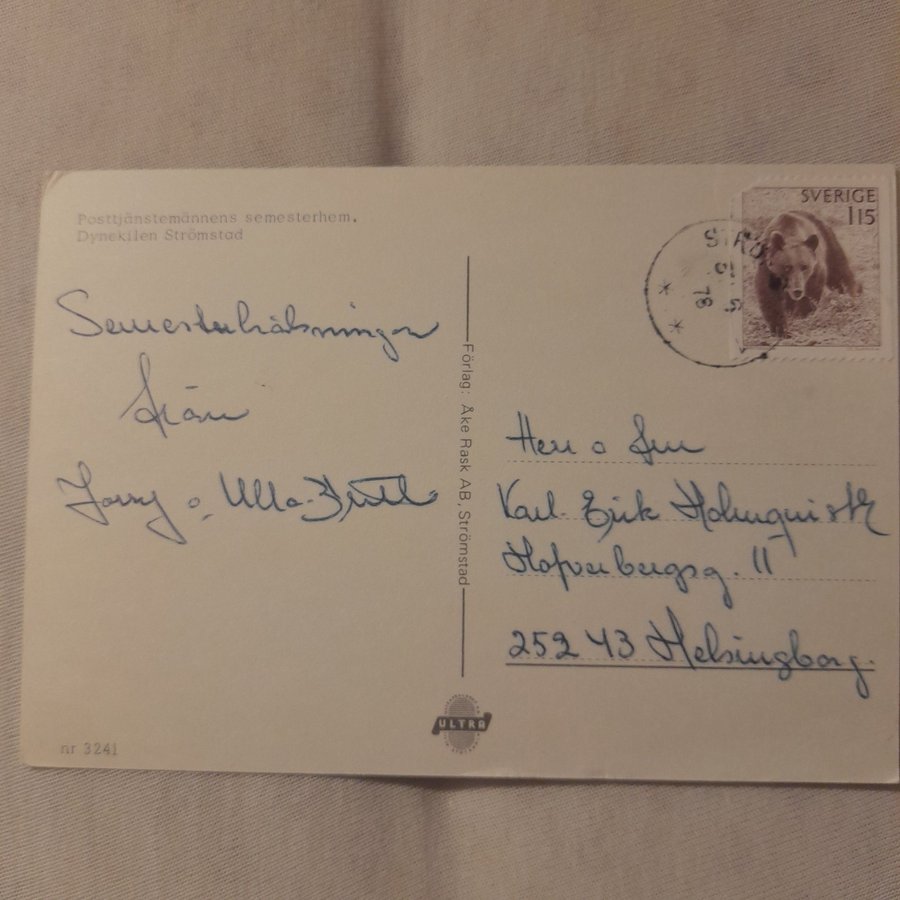 Posttjänstemännens semesterhem.
Dynekilen Strömstad
Semesterhälsningar
från
Jonny o. Ulla-Britt
nr 3241
Förlag: Åke Rask AB, Strömstad
ULTRA
SVERIGE
115
78
Herr o Fru
Karl-Erik Holmqvist
Hofverbergsg. 11
252 43 Helsingborg.